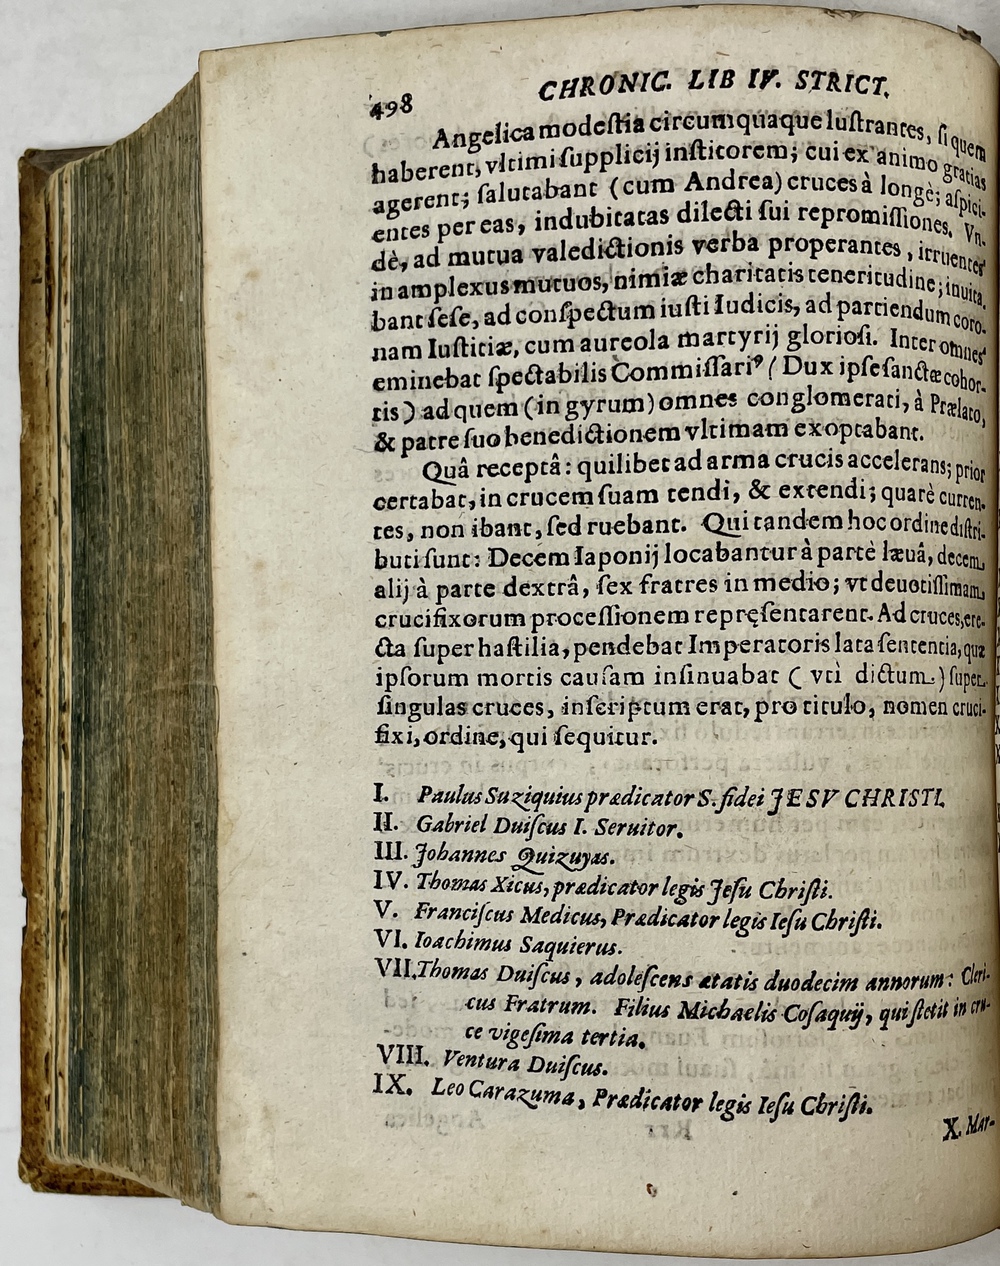 498
CHRONIC. LIB IV. STRICT.
Angelica modeſtia circumquaque luſtrantes, ſi quem
haberent, vltimi ſupplicij inſtitorem; cui ex animo gratias
agerent; ſalutabant (cum Andrea) cruces à longè; aſpici-
entes per eas, indubitatas dilecti ſui repromiſſiones. Vn-
dè, ad mutua valedictionis verba properantes, irruentes
in amplexus mutuos, nimiæ charitatis teneritudine; inuita-
bant ſeſe, ad conſpectum iuſti Iudicis, ad partiendum coro-
nam Iuſtitiæ, cum aureola martyrij glorioſi. Inter omnes
eminebat ſpectabilis Commiſſariꝰ (Dux ipſe ſanctæ cohor-
tis) ad quem (in gyrum) omnes conglomerati, à Prælato,
& patre ſuo benedictionem vltimam exoptabant.
Quâ receptâ: quilibet ad arma crucis accelerans; prior
certabat, in crucem ſuam tendi, & extendi; quarè curren-
tes, non ibant, ſed ruebant. Qui tandem hoc ordine diſtri-
buti ſunt: Decem Iaponij locabantur à partè læuâ, decem
alij à parte dextrâ, ſex fratres in medio; vt deuotiſſimam
crucifixorum proceſſionem repręſentarent. Ad cruces, ere-
cta ſuper haſtilia, pendebat Imperatoris lata ſententia, quæ
ipſorum mortis cauſam inſinuabat (vti dictum) ſuper
ſingulas cruces, inſcriptum erat, pro titulo, nomen cruci-
fixi, ordine, qui ſequitur.
I. Paulus Suziquius prædicator S. fidei JESV CHRISTI.
II. Gabriel Duiſcus I. Seruitor.
III. Johannes Quizuyas.
IV. Thomas Xicus, prædicator legis Jeſu Chriſti.
V. Franciſcus Medicus, Prædicator legis Ieſu Chriſti.
VI. Ioachimus Saquierus.
VII. Thomas Duiſcus, adoleſcens ætatis duodecim annorum: Cleri-
cus Fratrum. Filius Michaelis Coſaquij, qui ſtetit in cru-
ce vigeſima tertia.
VIII. Ventura Duiſcus.
IX. Leo Carazuma, Prædicator legis Ieſu Chriſti.
X. Mar-